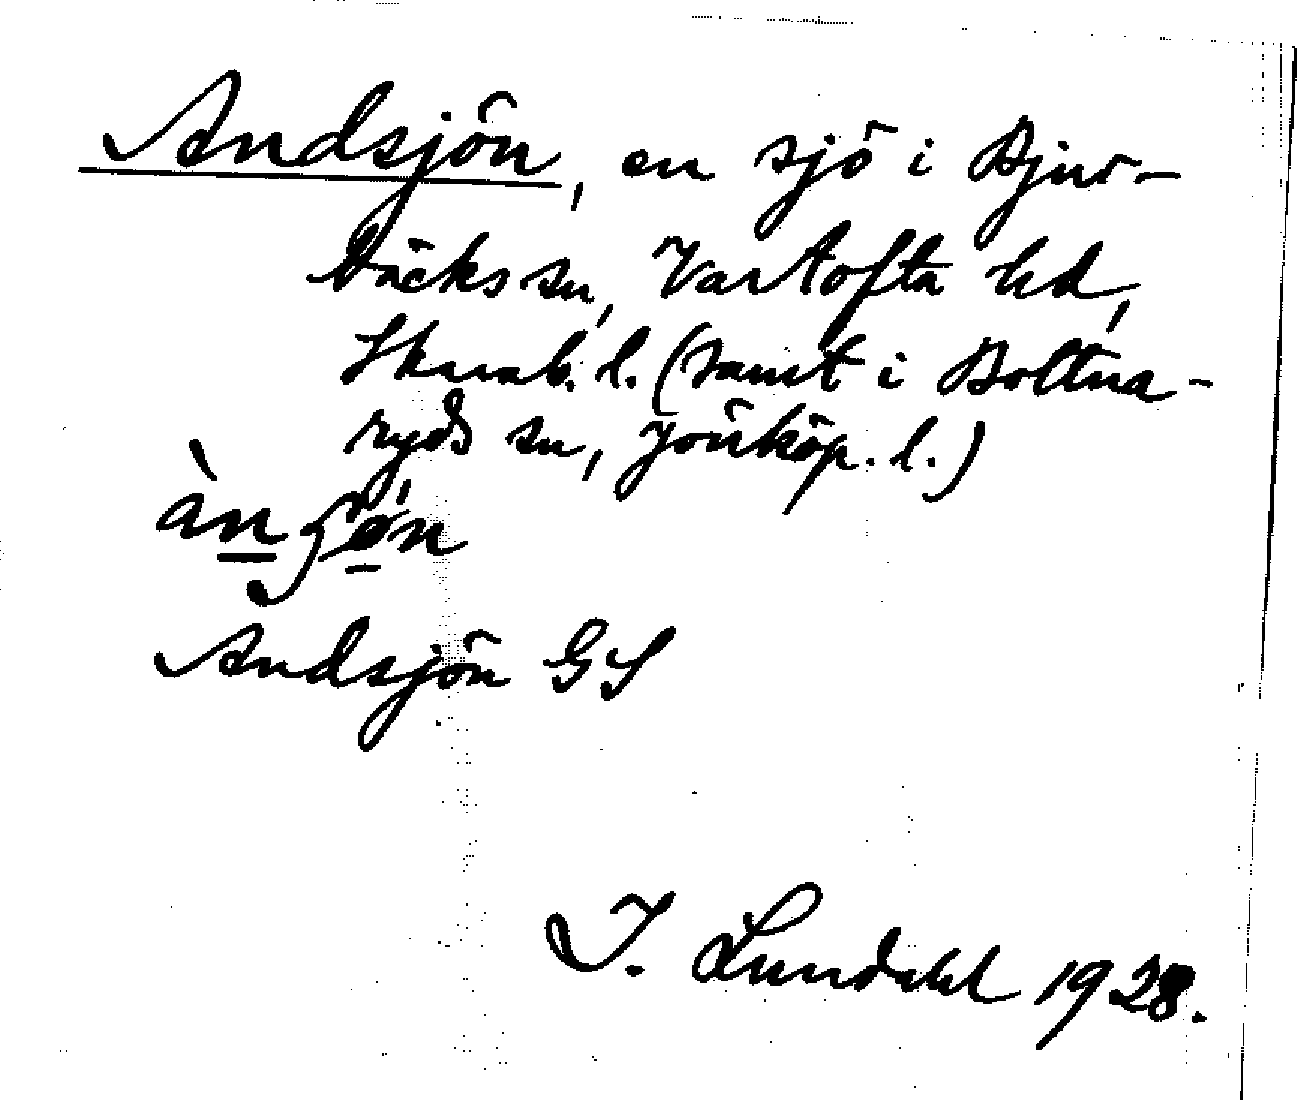 Andsjön, en sjö i Bjur-
bäcks sn, Vartofta hd,
Skarab. l. (samt i Bottna-
ryds sn, Jönköp. l.)
Andsjön GS
I. Lundahl 1928.